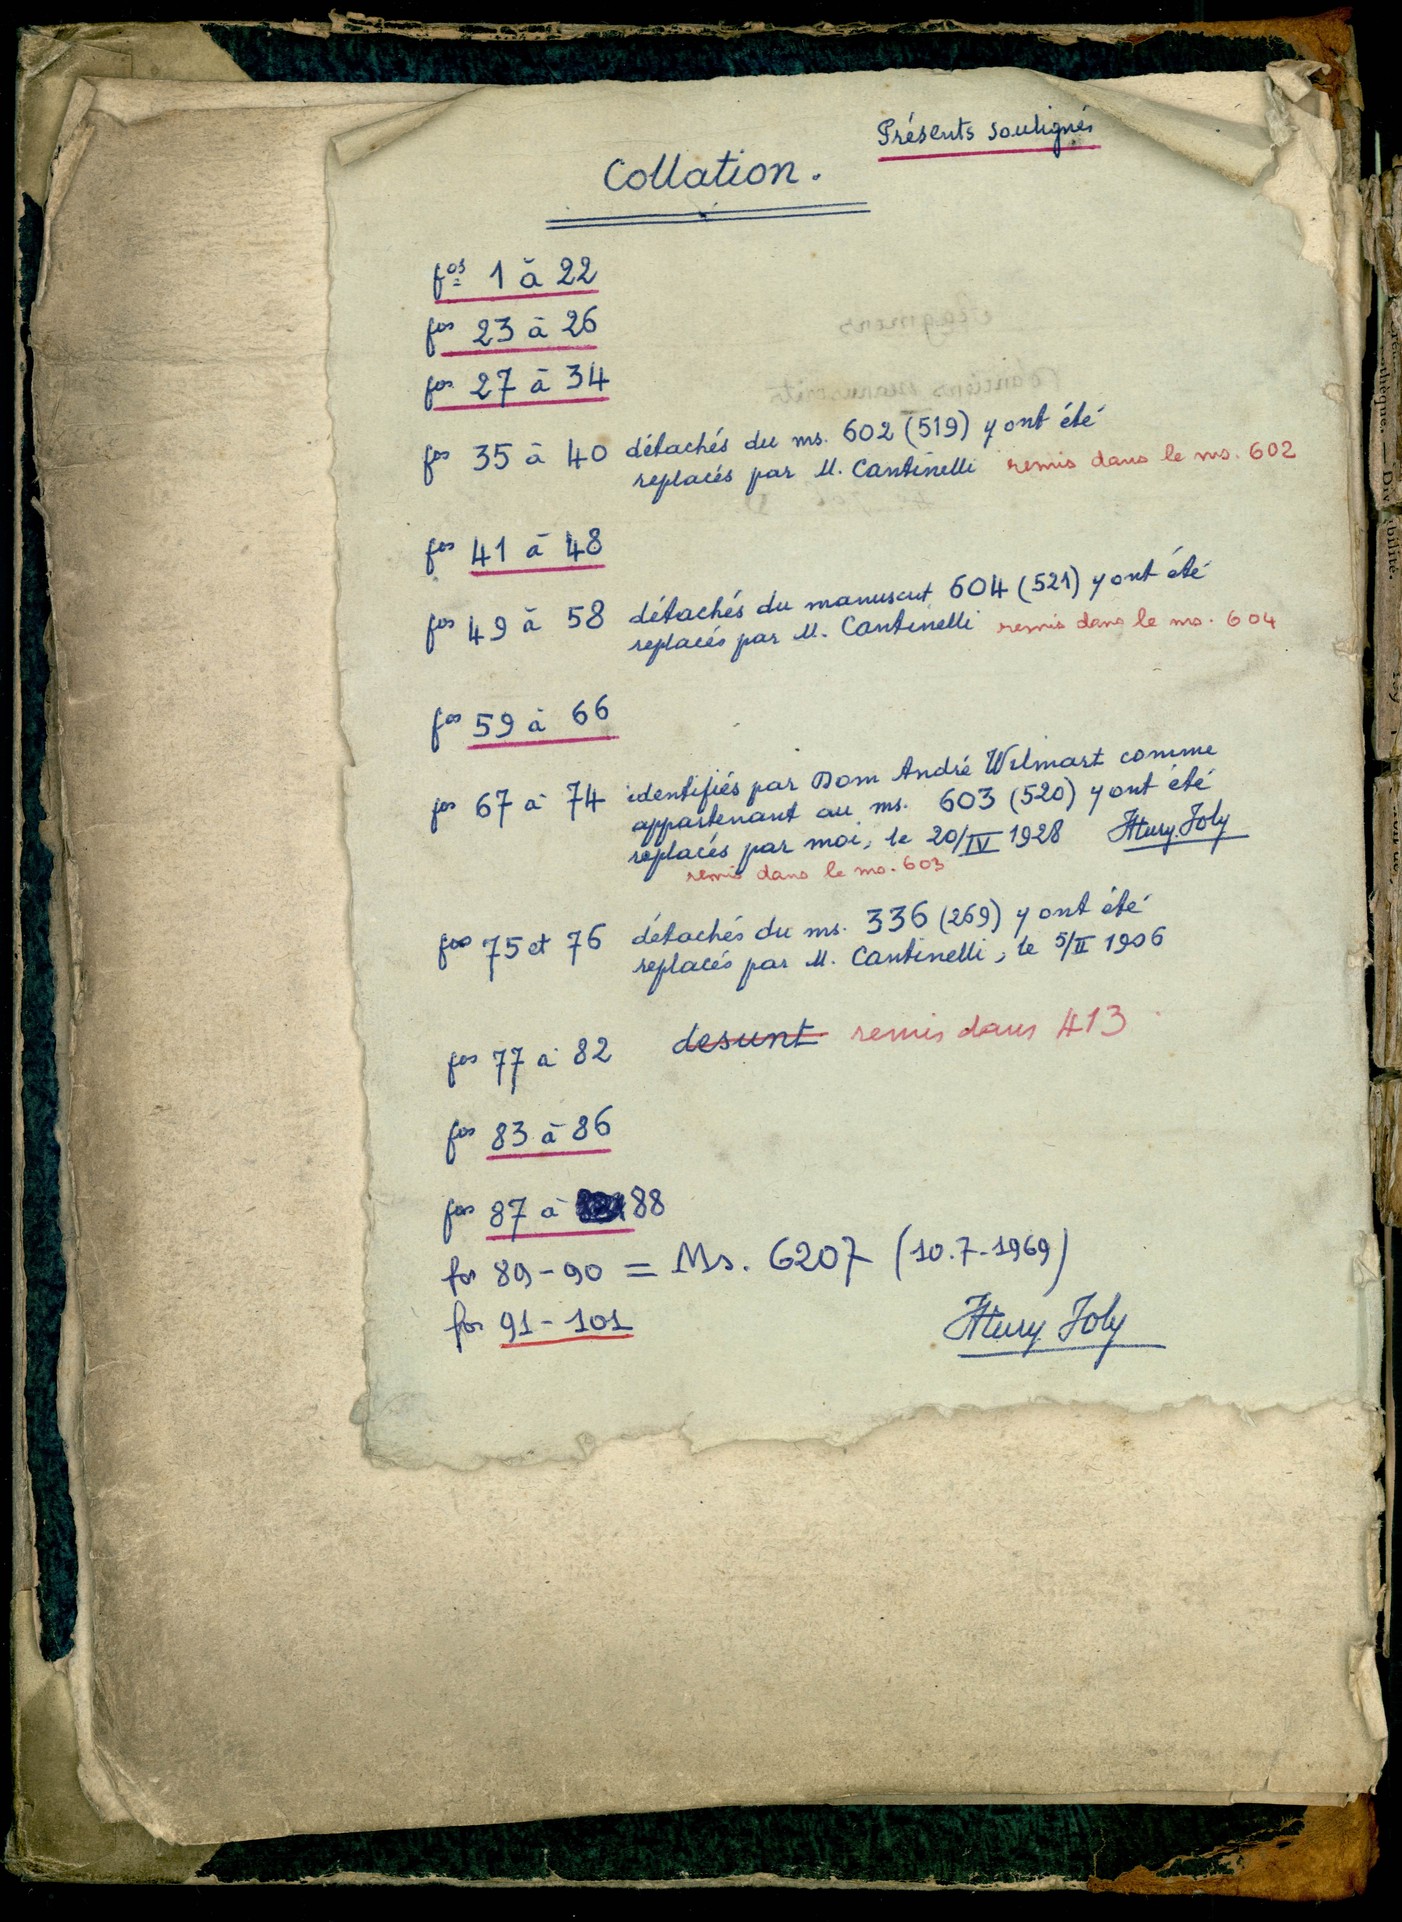 Présents soulignés
Collation.
fos 1 à 22
fos 23 à 26
fos 27 à 34
fos 35 à 40 détachés du ms. 602 (519) y ont été
replacés par M. Cantinelli remis dans le ms. 602
fos 41 à 48
fos 49 à 58 détachés du manuscrit 604 (521) y ont été
replacés par M. Cantinelli remis dans le ms. 604
fos 59 à 66
fos 67 à 74 identifiés par Dom André Wilmart comme
appartenant au ms. 603 (520) y ont été
replacés par moi, le 20/IV 1928 Henry Joly
remis dans le ms. 603
fos 75 et 76 détachés du ms. 336 (269) y ont été
replacés par M. Cantinelli, le 5/II 1906
fos 77 à 82 desunt remis dans 413
fos 83 à 86
fos 87 à 88
fos 89-90 = Ms. 6207 (10.7.1969)
fos 91-101
Henry Joly